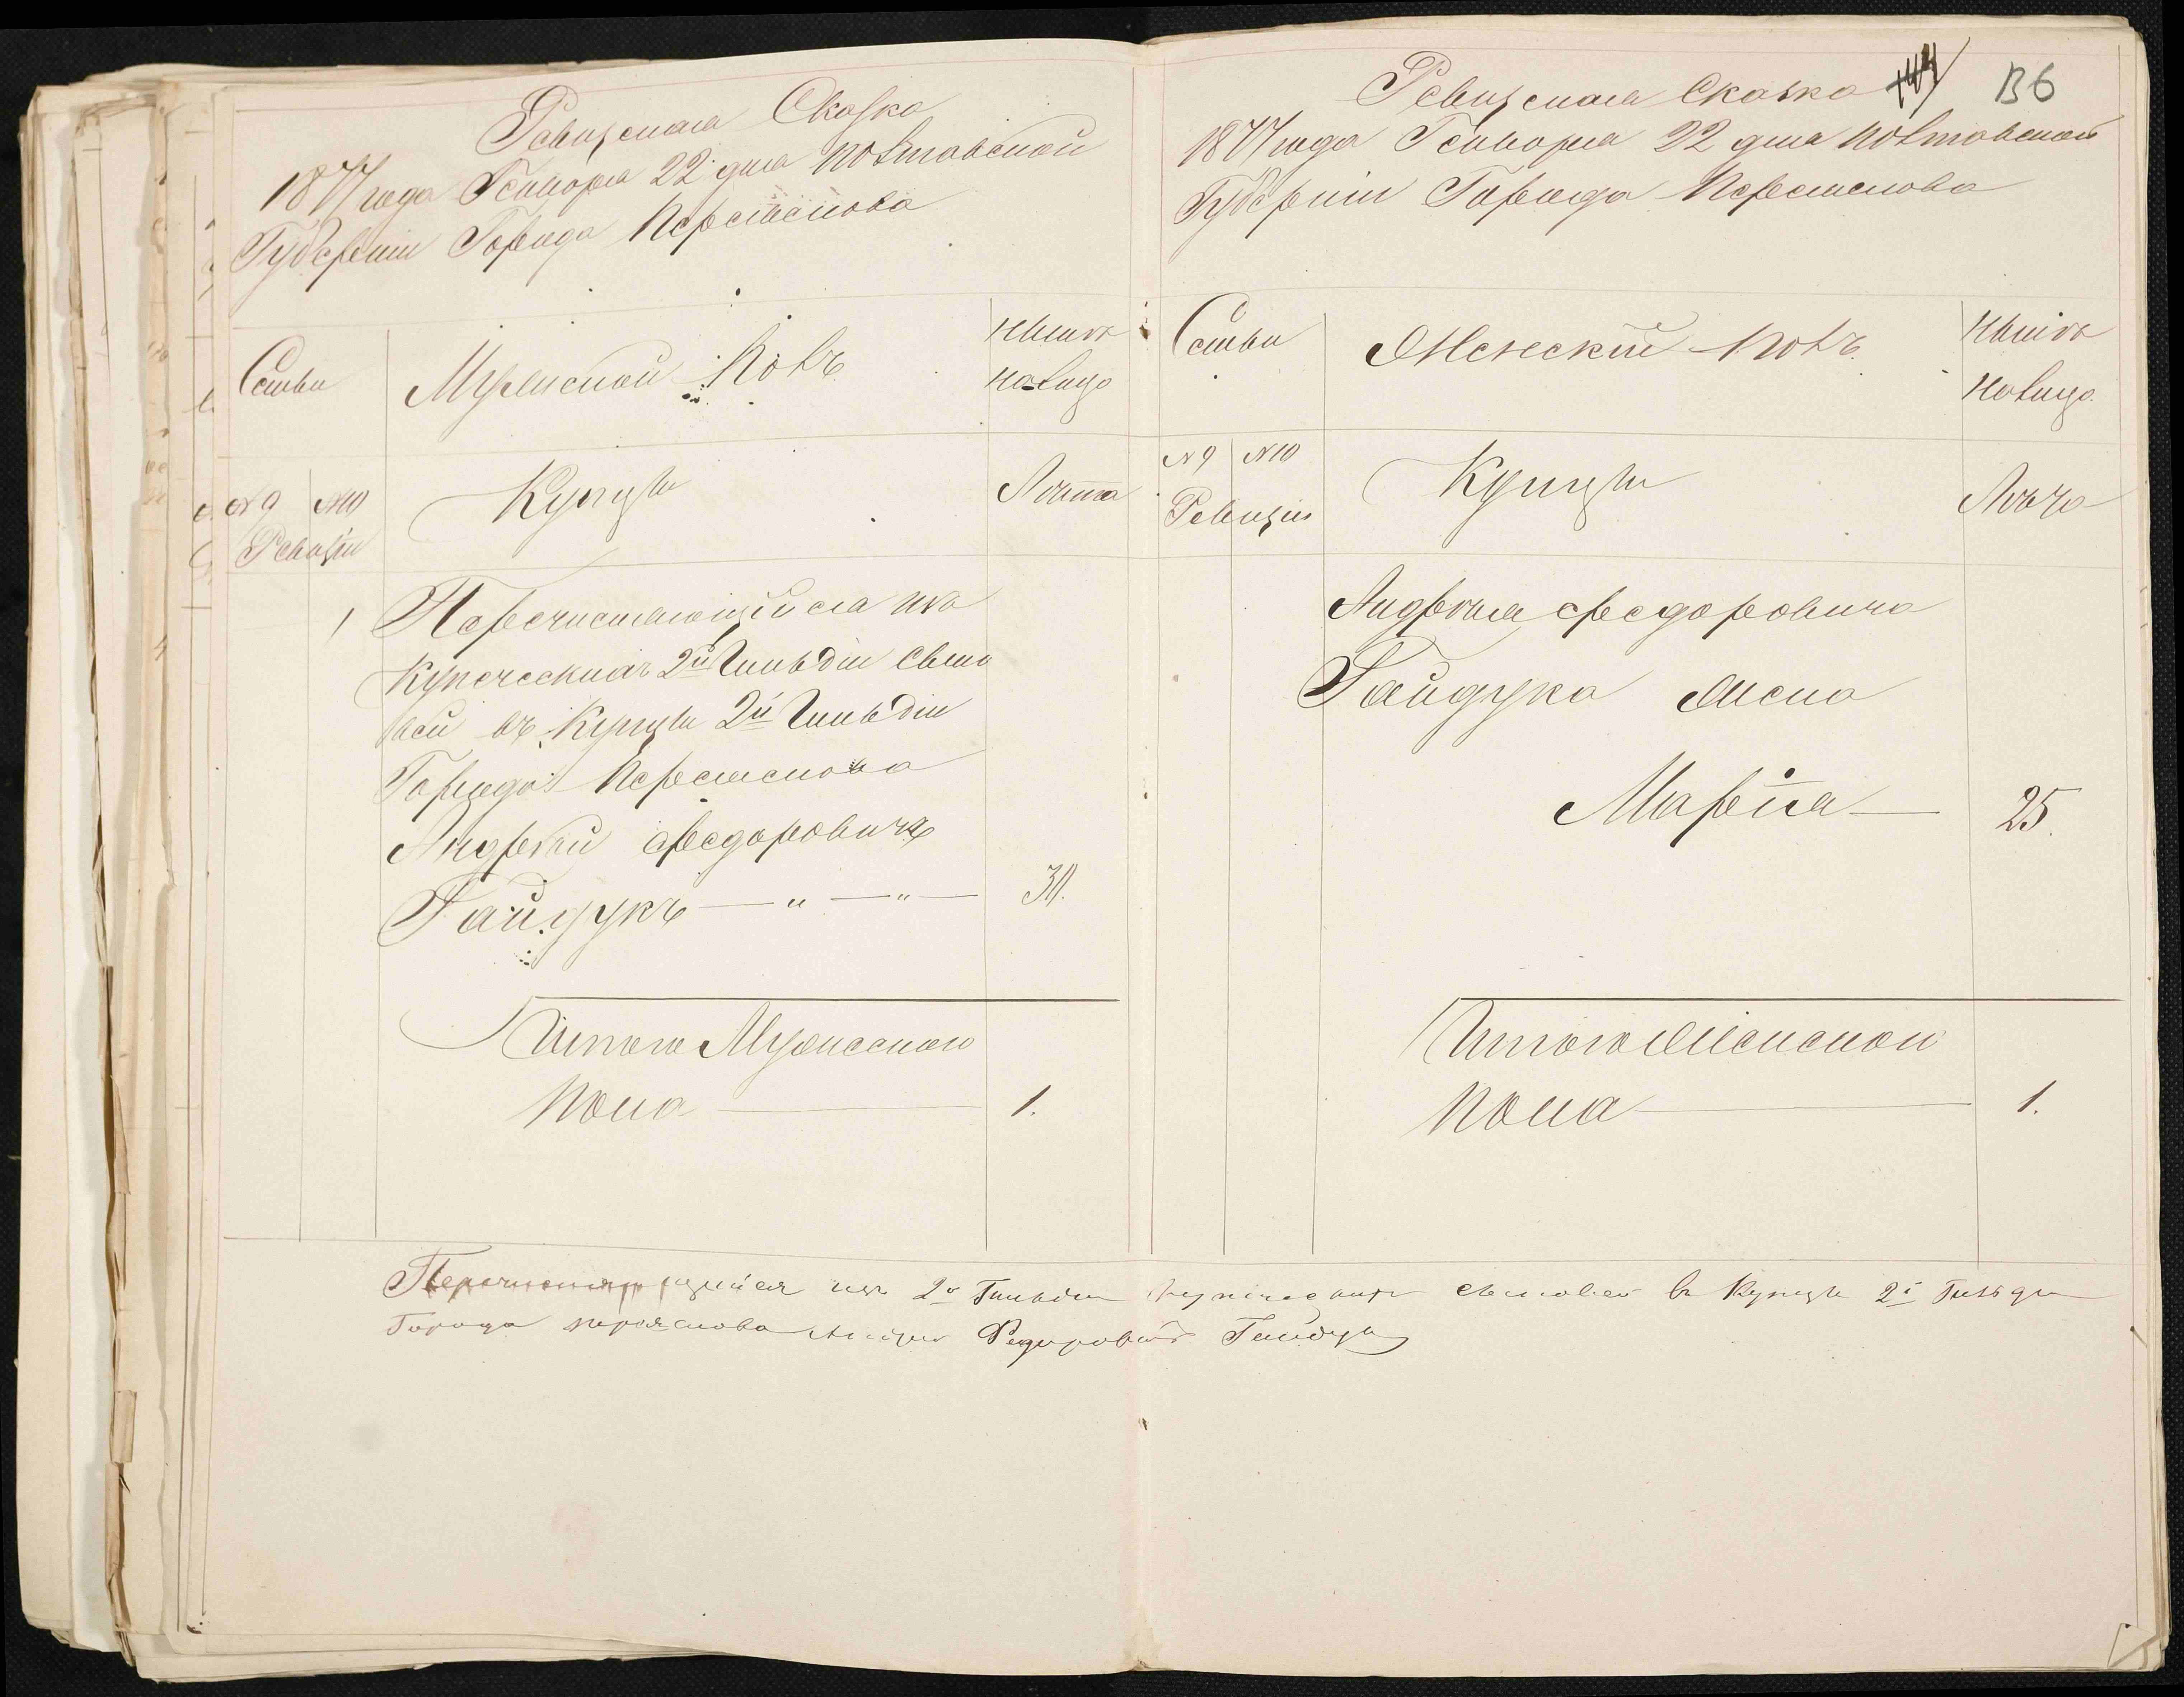 Ревизская Сказка
1877 года Генворя 22 дня Полтавской
Губернии Города Переяслова
Семьи
Мужской Полъ
Ныне
на лицо
№ 9 №10
Ревизіи
Купцы
Лѣта
1 Перечисляющійся изъ
Купеческихъ 2й Гильдіи сыно
вей въ Купцы 2й Гильдіи
Города Переяслова
Андрей Федоровичъ
Гайдукъ — " — " — 31.
Итого Мужескаго
Пола — 1.
Ревизская Сказка 136
1877 года Генворя 22 дня Полтавской
Губерніи Города Переяслова
Семьи
Женскій Полъ
Ныне
на лицо
№ 9 №10
Ревизіи
Купцы
Лѣта
Андрея Федоровича
Гайдука Жена
Марія — 25.
Итого Женскаго
Пола — 1.
Перечисляющийся изъ 2й Гильдіи купеческихъ сыновей въ Купцы 2й Гильди
Города Переяслова Андрей Федоровичъ Гайдукъ